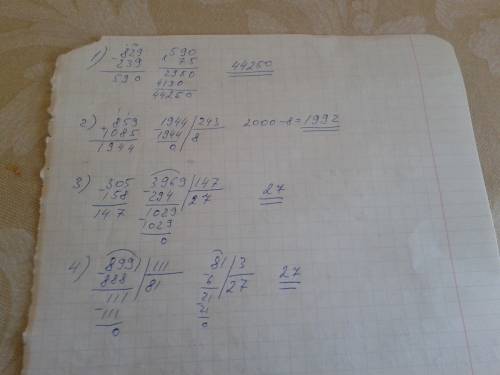 1) 829 590
- 239 × 75 44250
590 2950
4130
44250
2) 859 1944 | 243 2000-8=1992
+ 1085 1944 | 8
1944 0
3) 305 3969 | 147 27
- 158 294 | 27
147 1029
- 1029
0
4) 899 | 111 81 | 3 27
888 | 81 6 | 27
111 21
- 111 21
0 0